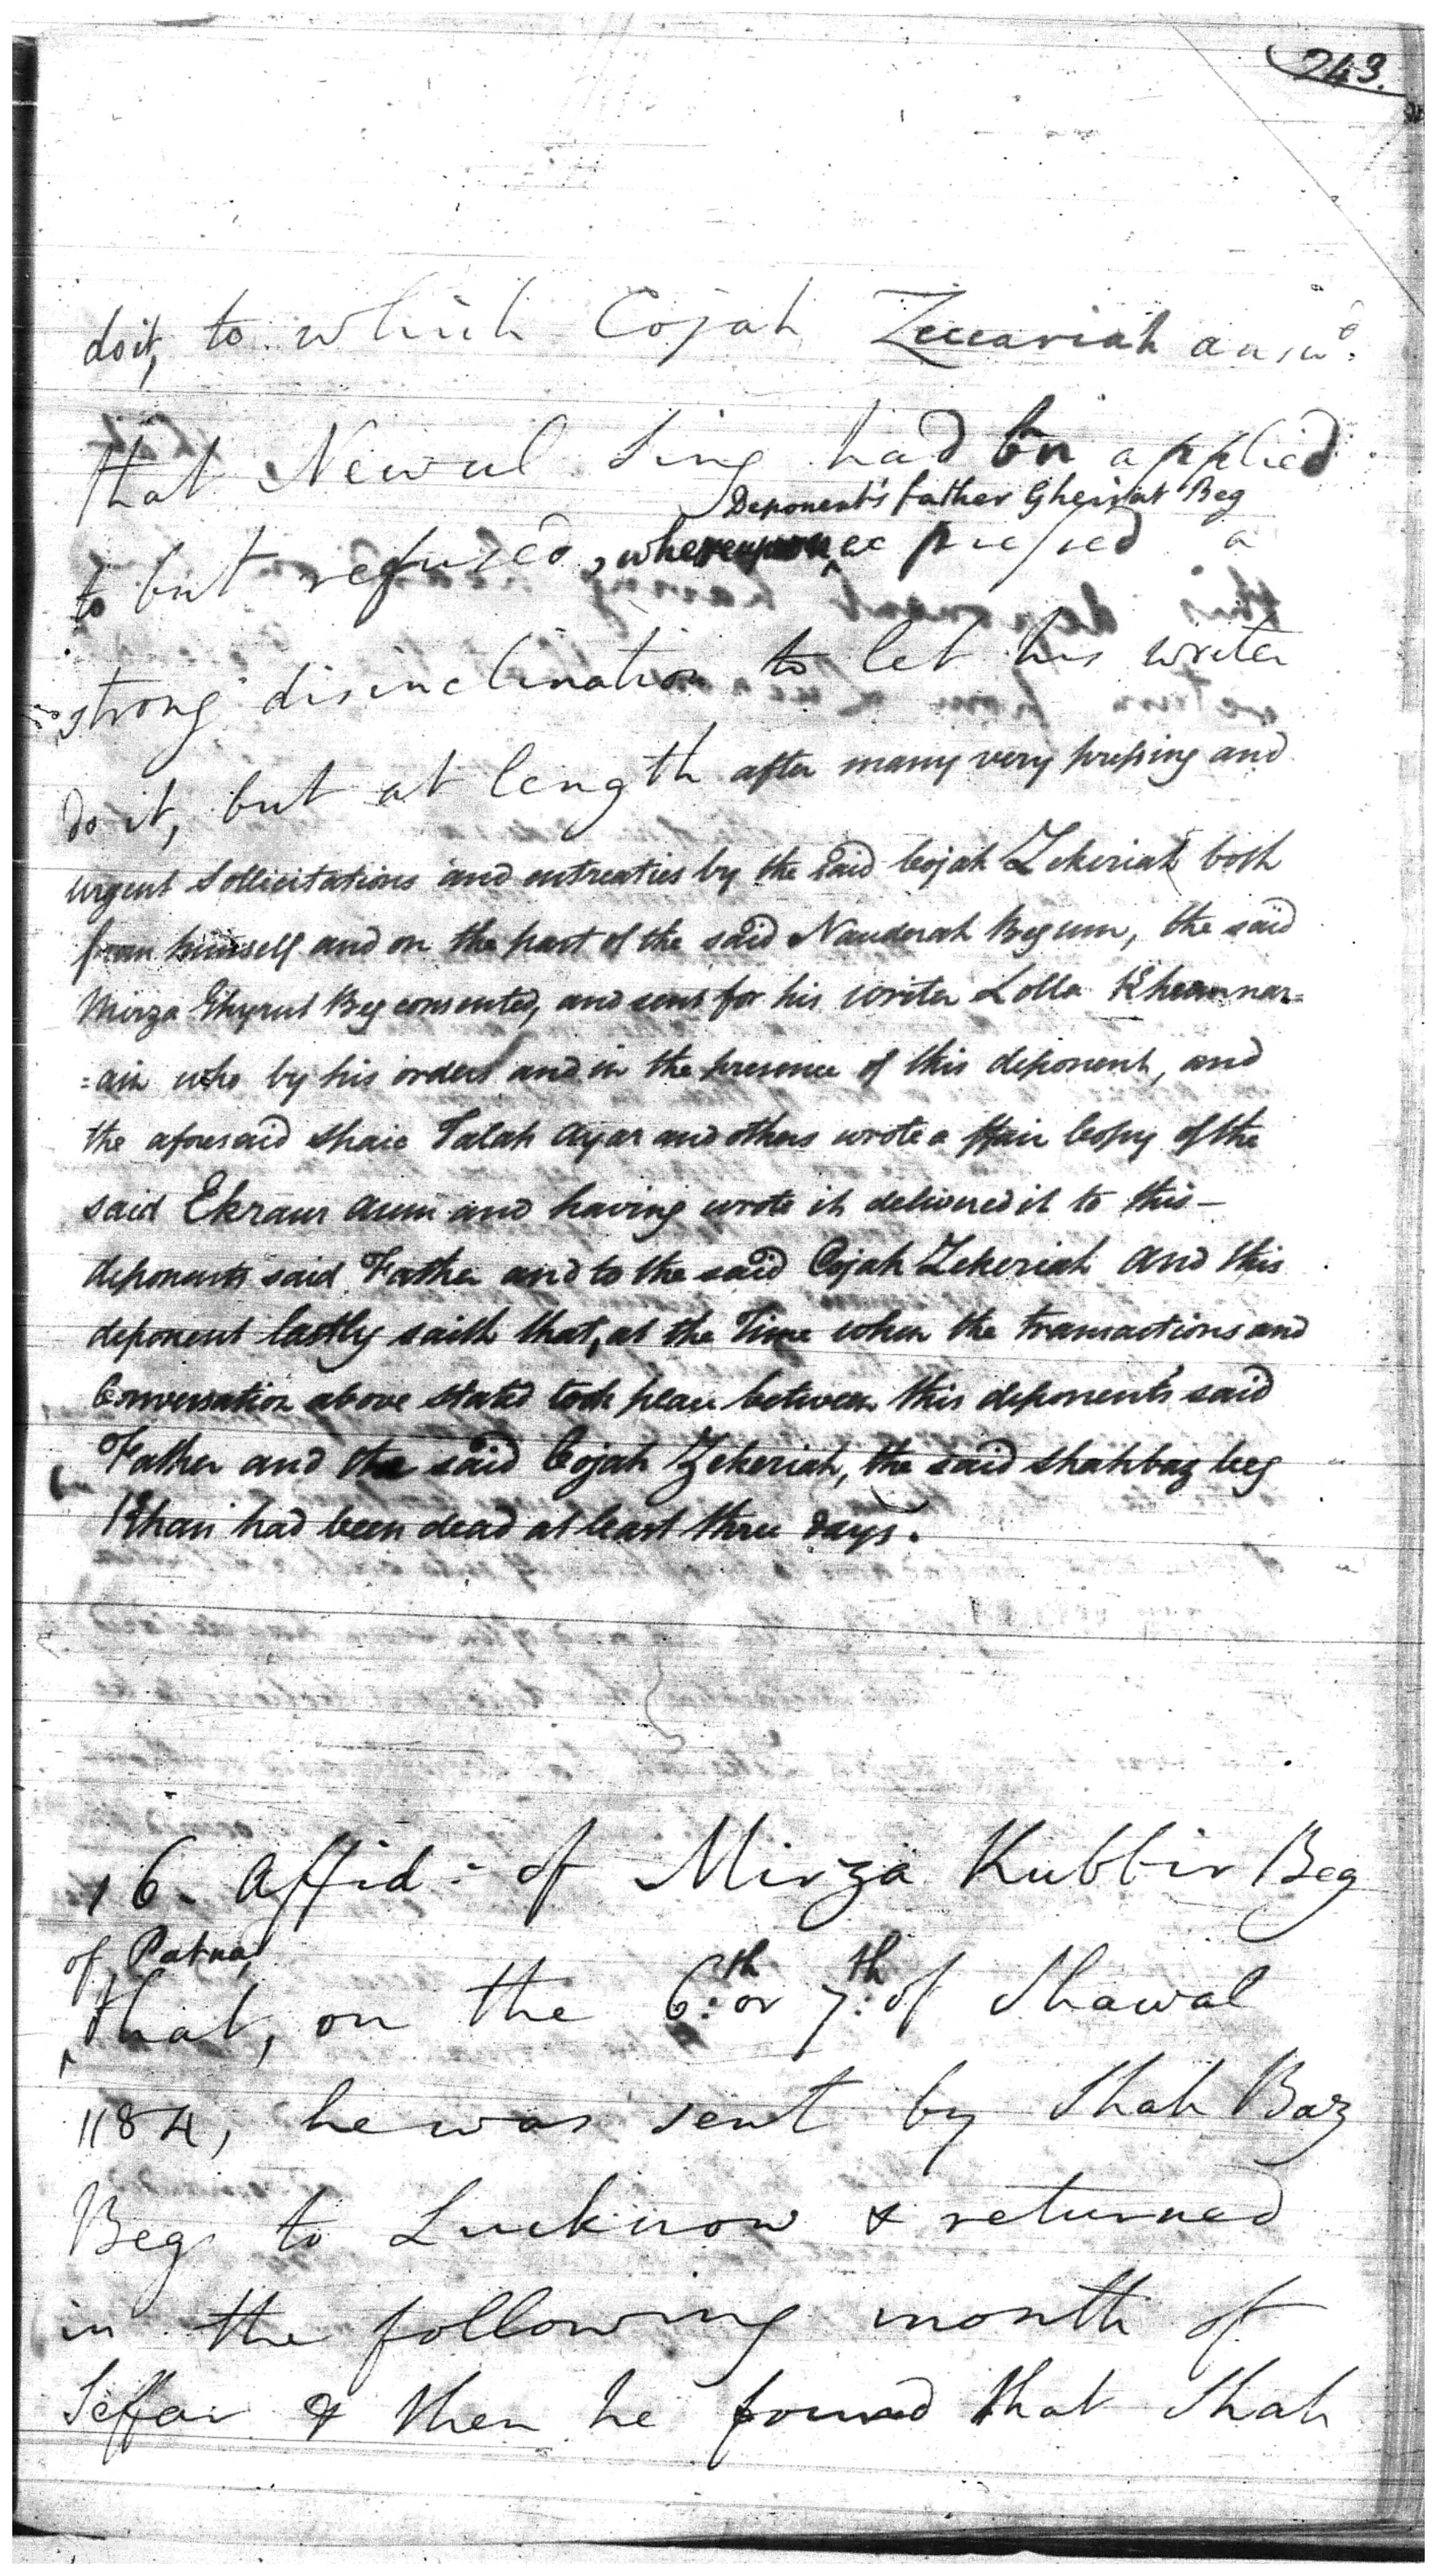 243.
do it, to which Cojah Zeccariah answd.
that Newul Sing had bn applied
Deponent's father Gheirut Beg
to but refused, whereupon expressed a
strong disinclination to let his writer
do it, but at length after many very pressing and
urgent Sollicitations and entreaties by the said Cojah Zekeriah both
from himself and on the part of the said Nauderah Begum, the said
Mirza Ghyrut Beg consented, and sent for his writer Lolla Kheamnar=
=ain who by his orders and in the presence of this deponent, and
the aforesaid Shaic Talah Ayar and others wrote a ffair Copy of the
said Ekraur aum and having wrote it delivered it to this-
deponents said Father and to the said Cojah Zekeriah and this
deponent lastly saith that, at the Time when the transactions and
Conversation above stated took place between this deponent's said
Father and the said Cojah Zekeriah, the said Shahbaz beg
Khan had been dead at least three days.
16. Affid. of Mirza Kubbir Beg
of Patna,
that, on the 6th. or 7th. of Shawal
1184, he was sent by Shah Baz
Beg to Lucknow & returned
in the following month of
Seffar & then he found that Shah